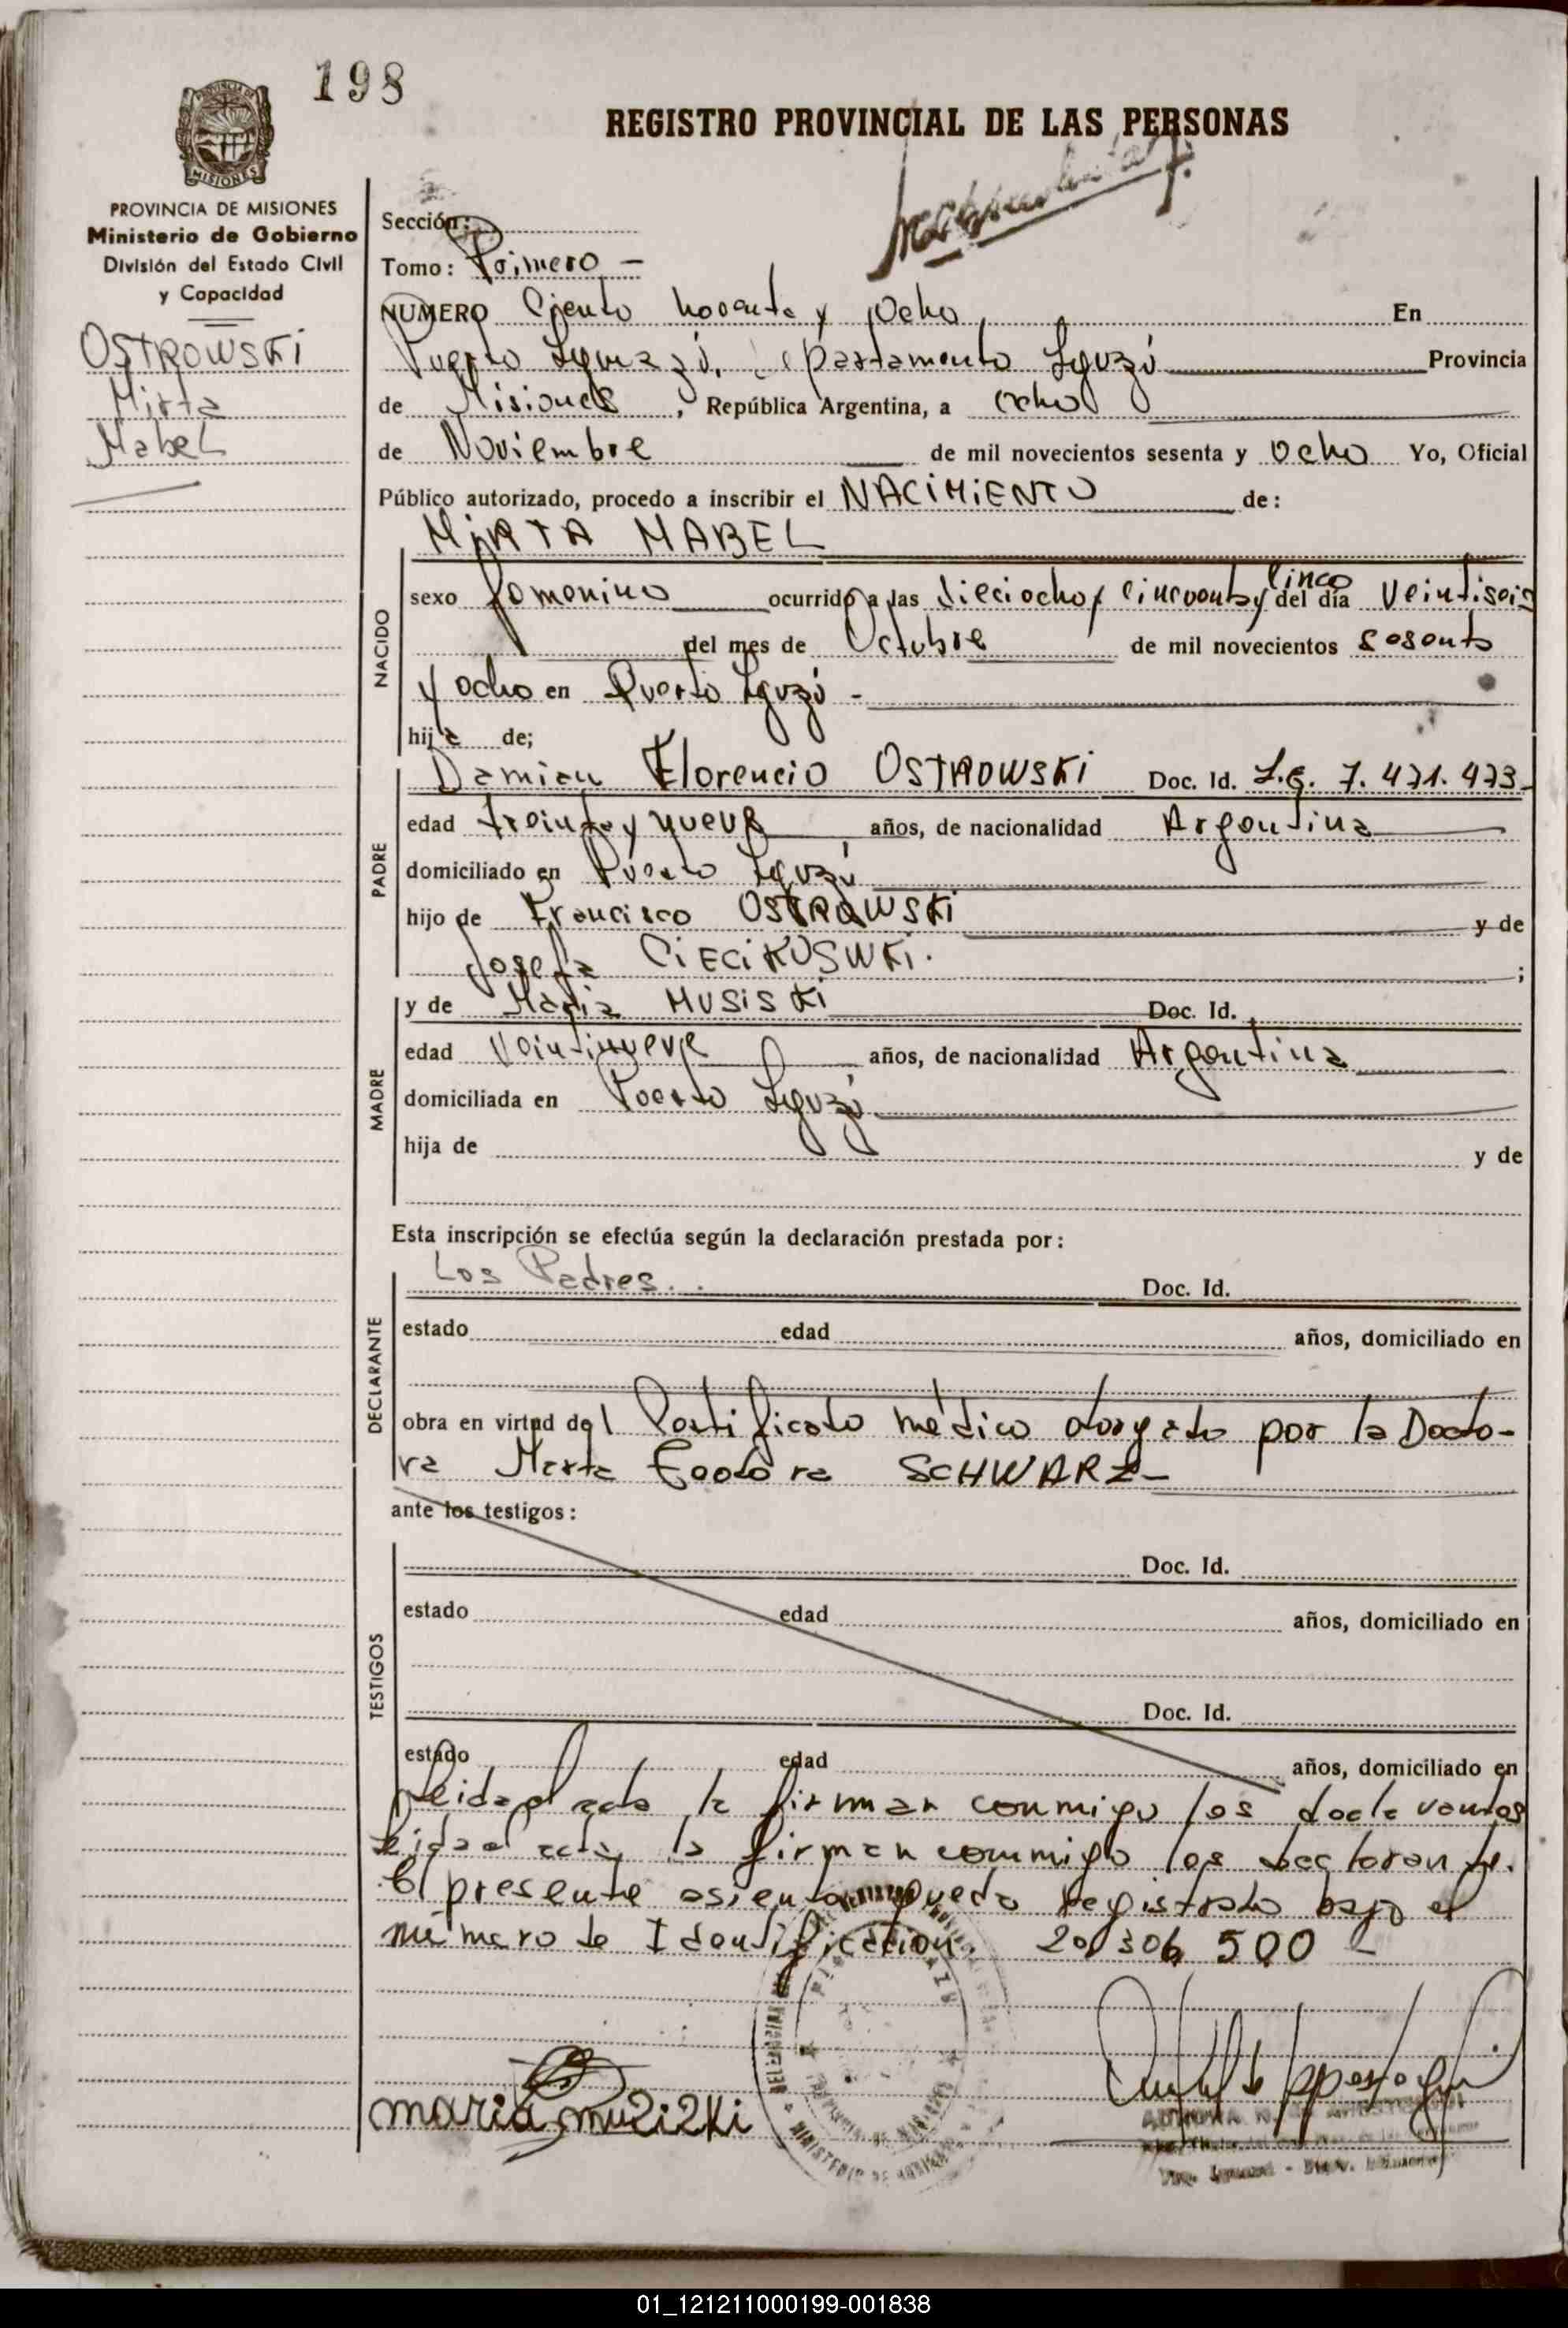 198
REGISTRO PROVINCIAL DE LAS PERSONAS
MISIONES
PROVINCIA DE MISIONES
Ministerio de Gobierno
División del Estado Civil
y Capacidad
OSTROWSKI
Mirta
Mabel
Sección:
Tomo: Primero -
NUMERO Ciento noventa y Ocho En
Puerto Iguazú, Departamento Iguazú Provincia
de Misiones, República Argentina, a ocho
de Noviembre de mil novecientos sesenta y Ocho Yo, Oficial
Público autorizado, procedo a inscribir el NACIMIENTO de:
MIRTA MABEL
NACIDO
sexo femenino ocurrido a las dieciocho y cincuenta y cinco del día Veintiseis
del mes de Octubre de mil novecientos sesenta
y ocho en Puerto Iguazú -
hija de;
PADRE
Damian Florencio OSTROWSKI Doc. Id. L.E. 7.471.473-
edad treinta y nueve años, de nacionalidad Argentina
domiciliado en Puerto Iguazú
hijo de Francisco OSTROWSKI y de
Josefa CIECIKOSWKI. ;
MADRE
y de Maria MUSISKI Doc. Id.
edad Veintinueve años, de nacionalidad Argentina
domiciliada en Puerto Iguazú
hija de y de
Esta inscripción se efectúa según la declaración prestada por:
DECLARANTE
Los Padres.. Doc. Id.
estado edad años, domiciliado en
obra en virtud del Certificato médico otorgato por la Docto-
ra Marta Teodora SCHWARZ-
ante los testigos:
TESTIGOS
Doc. Id.
estado edad años, domiciliado en
Doc. Id.
estado edad años, domiciliado en
Leida el acta la firman conmigo los declarantes
Leida el acta, la firman conmigo los declarantes.
El presente asiento queda registrado bajo el
número de Identificación. 20 306 500 -
maria muzizki
01_121211000199-001838